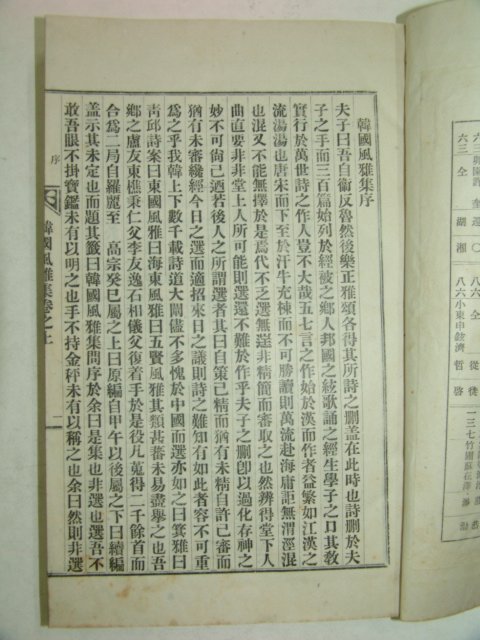 韓國風雅集序
夫子曰吾自衞反魯然後樂正雅頌各得其所詩之删盖在此時也詩删於夫
子之手而三百篇始列於經被之鄉人邦國之絃歌誦之經生學子之口其敎
實行於萬世詩之作人豈不大哉五七言之作始於漢而作者益繁如江漢之
流湯湯也唐宋而下至於汗牛充棟而不可勝讀則萬流赴海庸詎無渭涇混
也混又不能無擇於是爲代不乏選無逕非精簡而審取之也然辨得堂下人
曲直要非非堂上人所可能則選還不難於作乎夫子之删卽以過化存神之
妙不可尙已逎若後人之所謂選者其曰自策己精而猶有未精自許己審而
猶有未審纔經今日之選而適招來日之議則詩之難知有如此者容不可重
爲之乎我韓上下數千載詩道大闡儘不多愧於中國而選亦如之曰箕雅曰
靑邱詩案曰東國風雅曰海東風雅曰五賢風雅其類甚蕃未易盡擧之也吾
鄕之盧友東樵秉仁父李友逸石相儀父復着手於是役凡蒐得二千餘首而
合爲二局自羅麗至　高宗癸巳屬之上曰原編自甲午以後屬之下曰續編
盖示其未定也而題其籤曰韓國風雅集問序於余曰是集也非選也選吾不
敢吾眼不掛寶鑑未有以明之也手不持金秤未有以稱之也余曰然則非選
序
韓國風雅集卷之上
一
六三 全 湖湘
八六 全
八六 小東申
一三七